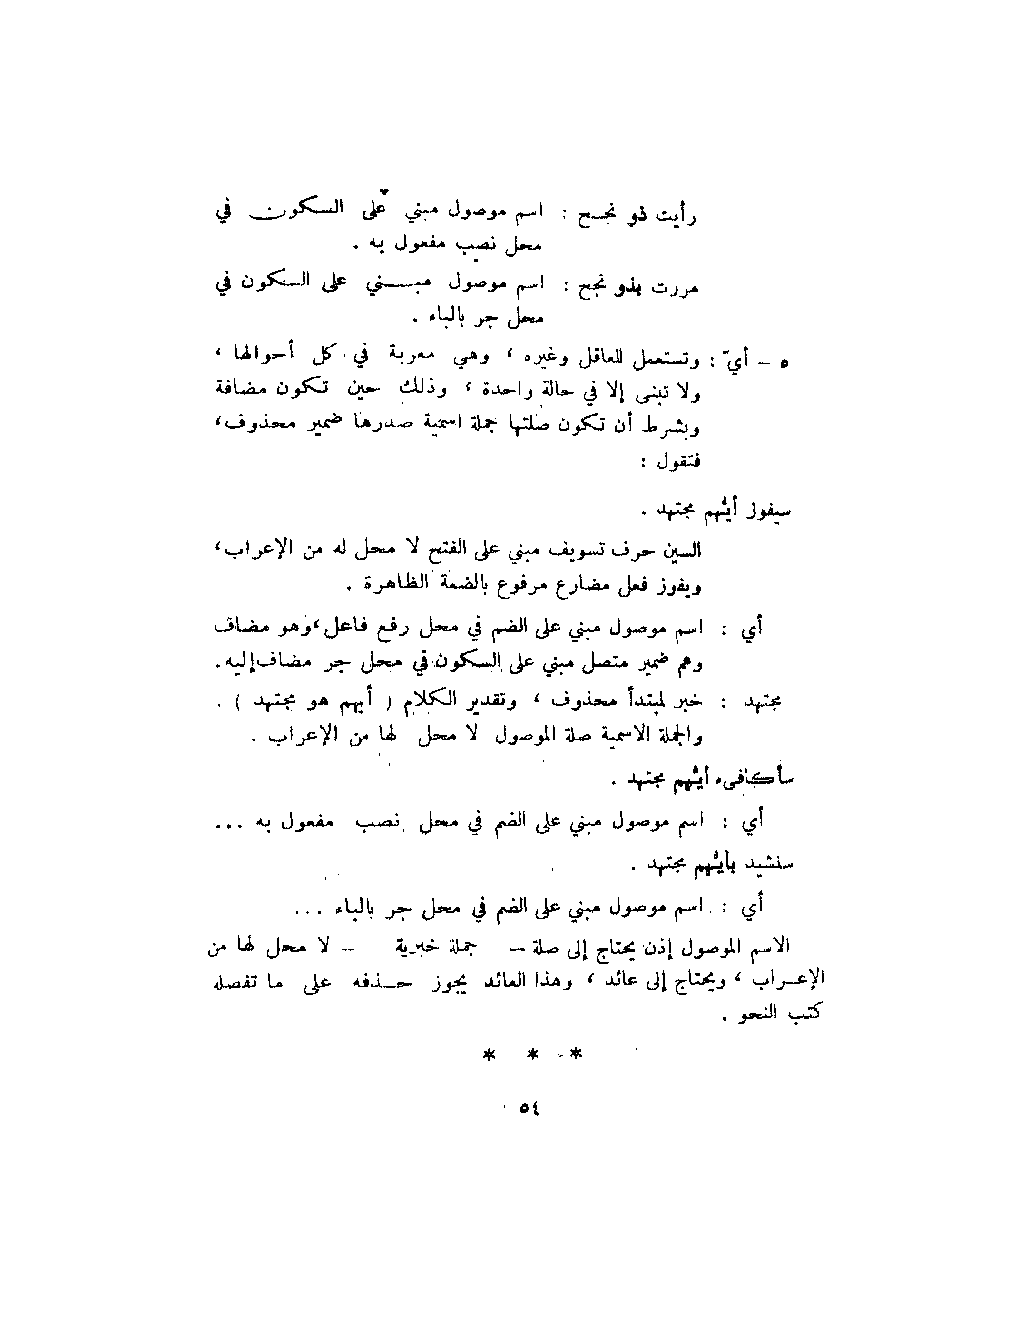 رأيت ذو نجح : اسم موصول مبني على السكون في
محل نصب مفعول به .
مررت بذو نجح : اسم موصول مبني على السكون في
محل جر بالباء .
٥ – أيّ : وتستعمل للعاقل وغيره ، وهي معربة في كل أحوالها ،
ولا تبنى إلا في حالة واحدة ، وذلك حين تكون مضافة
وبشرط أن تكون صلتها جملة اسمية صدرها ضمير محذوف،
فتقول :
سيفوز أيُّهم مجتهد .
السين حرف تسويف مبني على الفتح لا محل له من الإعراب،
ويفوز فعل مضارع مرفوع بالضمة الظاهرة .
أي : اسم موصول مبني على الضم في محل رفع فاعل،وهو مضاف
وهم ضمير متصل مبني على السكون في محل جر مضاف إليه.
مجتهد : خبر لمبتدأ محذوف ، وتقدير الكلام ( أيهم هو مجتهد ) .
والجملة الاسمية صلة الموصول لا محل لها من الإعراب .
سأكافىء أيُّهم مجتهد .
أي : اسم موصول مبني على الضم في محل نصب مفعول به ...
سنشيد بأيُّهم مجتهد .
أي : اسم موصول مبني على الضم في محل جر بالباء ...
الاسم الموصول إذن يحتاج إلى صلة – جملة خبرية – لا محل لها من
الإعراب ، ويحتاج إلى عائد ، وهذا العائد يجوز حذفه على ما تفصله
كتب النحو .
* * *
٥٤